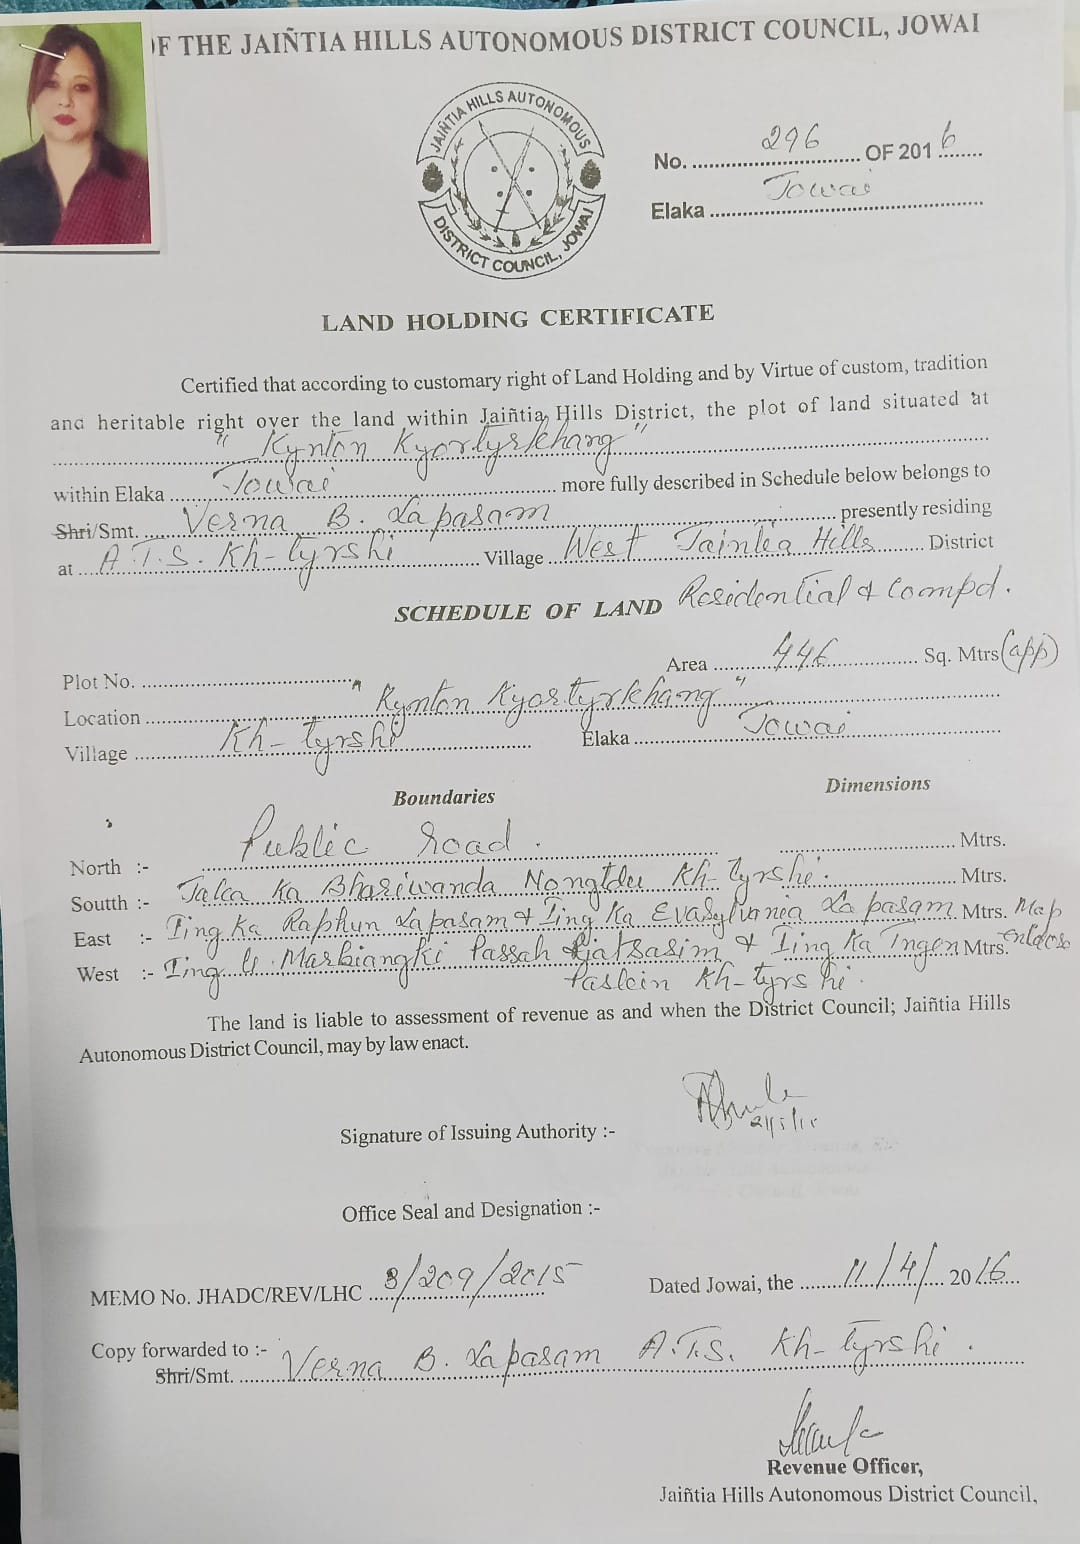 OF THE JAIÑTIA HILLS AUTONOMOUS DISTRICT COUNCIL, JOWAI
JAIÑTIA HILLS AUTONOMOUS
DISTRICT COUNCIL, JOWAI
No. 296 OF 2016
Elaka Jowai
LAND HOLDING CERTIFICATE
Certified that according to customary right of Land Holding and by Virtue of custom, tradition
and heritable right over the land within Jaiñtia Hills District, the plot of land situated at
" Kynton Kyortyrkhang "
within Elaka Jowai more fully described in Schedule below belongs to
Shri/Smt. Verna B. Lapasam presently residing
at A.T.S. Kh-tyrshi Village West Jaintia Hills District
SCHEDULE OF LAND Residential & Compd.
Plot No. Area 446 Sq. Mtrs (app)
Location " Kynton Kyortyrkhang "
Village Kh-tyrshi Elaka Jowai
Boundaries Dimensions
North :- Public road. Mtrs.
Soutth :- Ka Nongtdu Kh-tyrshi. Mtrs.
East :- Iing Ka Raphun Lapasam & Iing Ka Evasylvania Lapasam Mtrs. Map
West :- Iing U. Marbiangki Passah & Iing Ka Ingen Mtrs.
Kh-tyrshi.
The land is liable to assessment of revenue as and when the District Council; Jaiñtia Hills
Autonomous District Council, may by law enact.
Signature of Issuing Authority :-
Office Seal and Designation :-
MEMO No. JHADC/REV/LHC 8/209/2015 Dated Jowai, the 11/4/2016
Copy forwarded to :-
Shri/Smt. Verna B. Lapasam A.T.S. Kh-tyrshi.
Revenue Officer,
Jaiñtia Hills Autonomous District Council,